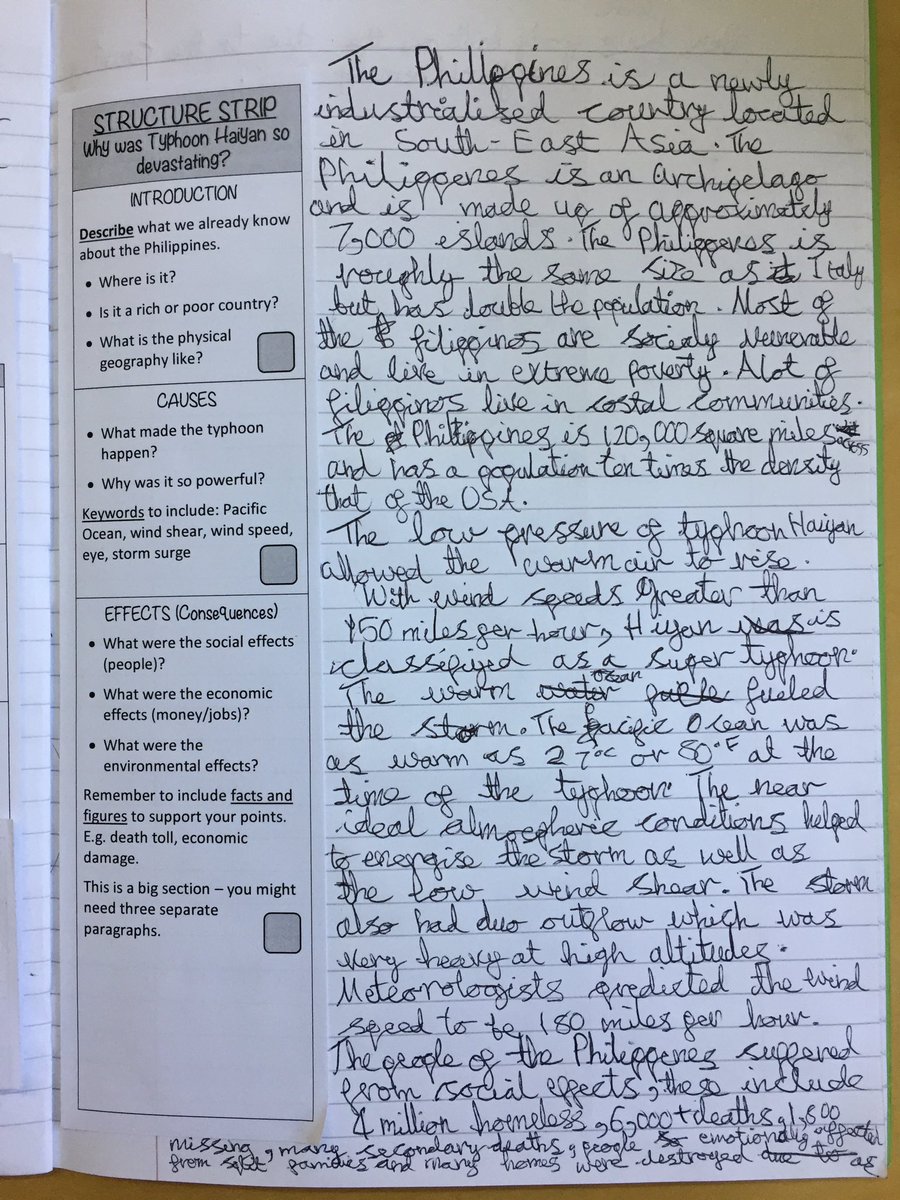 STRUCTURE STRIP
Why was Typhoon Haiyan so
devastating?
INTRODUCTION
Describe what we already know
about the Philippines.
• Where is it?
• Is it a rich or poor country?
• What is the physical
geography like?
CAUSES
• What made the typhoon
happen?
• Why was it so powerful?
Keywords to include: Pacific
Ocean, wind shear, wind speed,
eye, storm surge
EFFECTS (Consequences)
• What were the social effects
(people)?
• What were the economic
effects (money/jobs)?
• What were the
environmental effects?
Remember to include facts and
figures to support your points.
E.g. death toll, economic
damage.
This is a big section – you might
need three separate
paragraphs.
The Philippines is a newly
industrialised country located
in South-East Asia. The
Philippenes is an archipelago
and is made up of approximately
7,000 islands. The Philippenes is
roughly the same size as Italy
but has double the population. Most of
the filippines are socialy vulnerable
and live in extreme poverty. A lot of
filippinos live in costal communities.
The Philippines is 120,000 square miles
and has a population ten times the density
that of the USA.
The low pressure of typhoon Haiyan
allowed the warm air to rise.
With wind speeds greater than
150 miles per hour, Hiyan is
classifiyed as a super typhoon.
The warm ocean fueled
the storm. The pacific Ocean was
as warm as 27°C or 80°F at the
time of the typhoon. The near
ideal atmospheric conditions helped
to energise the storm as well as
the low wind shear. The storm
also had duo outflow which was
very heavy at high altitudes.
Meteorologists predicted the wind
speed to be 180 miles per hour.
The people of the Philippenes suffered
from social effects, these include
4 million homeless, 6,000+ deaths, 1,800
missing, many secondary deaths, people emotionally affected
from split families and many homes were destroyed as